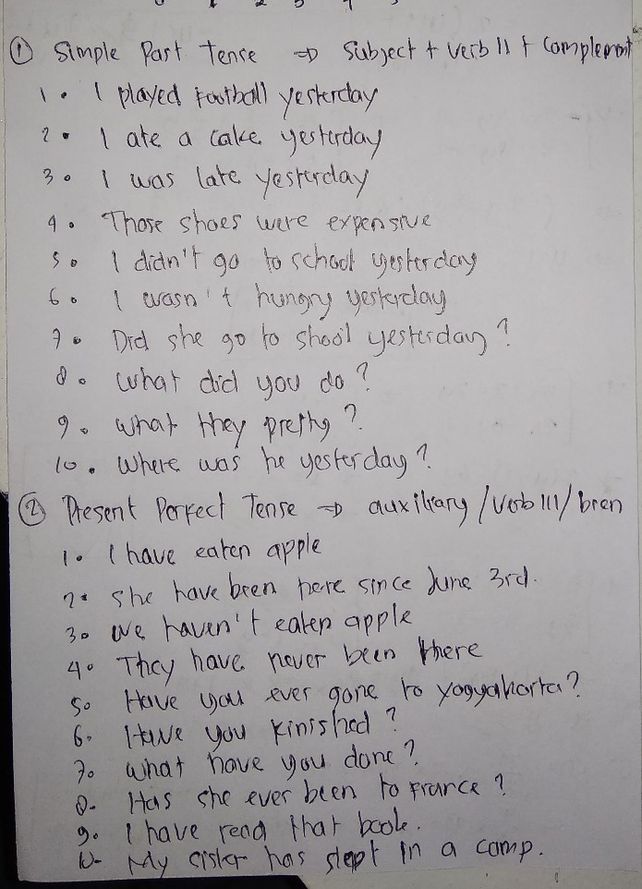 ① Simple Past Tense ⇒ Subject + Verb II + Complement
1. I played Football yesterday
2. I ate a cake yesterday
3. I was late yesterday
4. Those shoes were expensive
5. I didn't go to school yesterday
6. I wasn't hungry yesterday
7. Did she go to shool yesterday?
8. What did you do?
9. What they pretty?
10. Where was he yesterday?
② Present Perfect Tense ⇒ auxiliary / Verb III / been
1. I have eaten apple
2. She have been here since June 3rd.
3. We haven't eaten apple
4. They have never been there
5. Have you ever gone to Yogyakarta?
6. Have you Finished?
7. What have you done?
8. Has she ever been to France?
9. I have read that book.
10. My sister has slept in a camp.